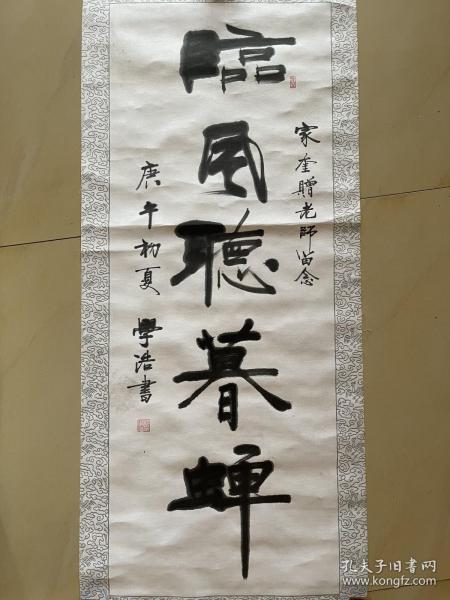 家奎贈老師留念
臨風聽暮蟬
庚午初夏 學浩書
孔夫子旧书网
www.kongfz.com